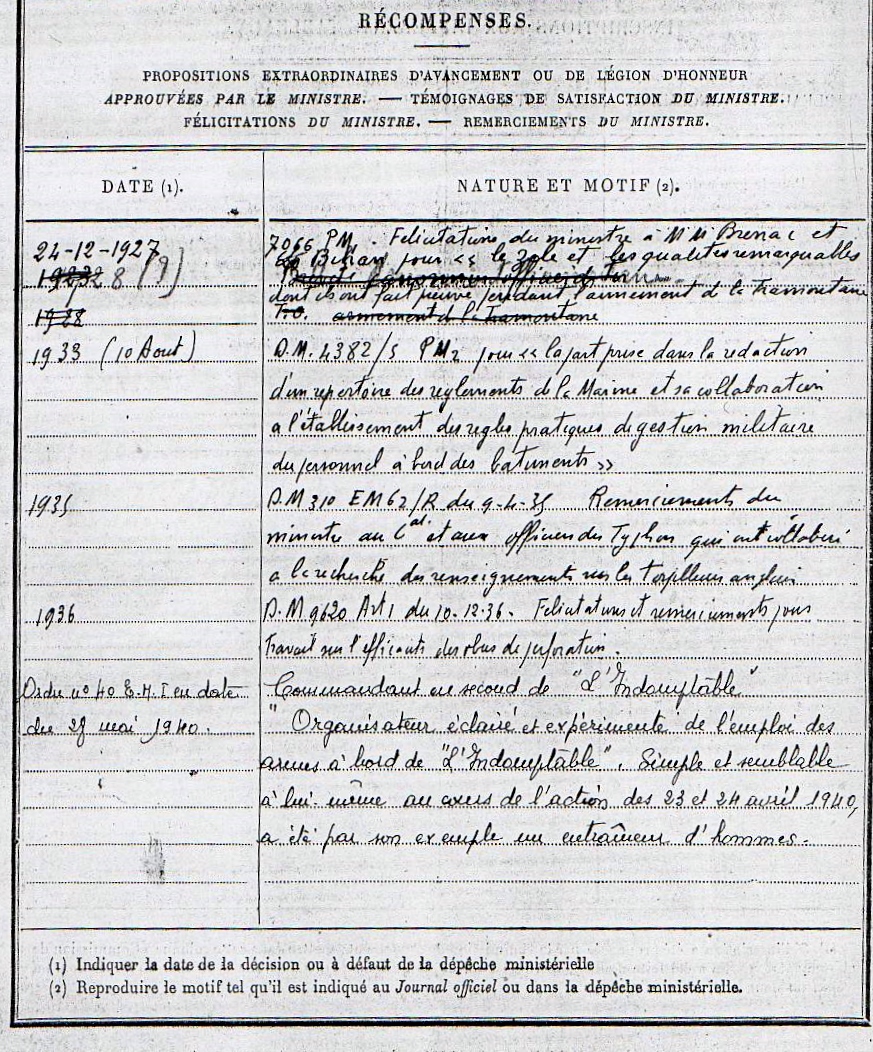 RÉCOMPENSES.
PROPOSITIONS EXTRAORDINAIRES D'AVANCEMENT OU DE LÉGION D'HONNEUR
APPROUVÉES PAR LE MINISTRE. — TÉMOIGNAGES DE SATISFACTION DU MINISTRE.
FÉLICITATIONS DU MINISTRE. — REMERCIEMENTS DU MINISTRE.
DATE (1).
NATURE ET MOTIF (2).
24-12-1927
7066 PM. Felicitations du ministre à MM Brenac et
Le Bihan pour << le zele et les qualités remarquables
8 (?)
dont ils ont fait preuve pendant l'armement de la Tramontane
1928
T.O. armement de la Tramontane
1933 (10 Aout)
D.M. 4382/S PM2 pour << la part prise dans la redaction
d'un repertoire des reglements de la Marine et sa collaboration
a l'établissement des regles pratiques de gestion militaire
du personnel à bord des batiments >>
1935
D.M 310 EMG2/R du 9-4-35 Remerciements du
ministre au Cat et aux officiers du Typhon qui ont collaboré
a la recherche des renseignements sur les torpilleurs anglais
1936
D.M 9620 Art 1 du 10.12.36. Felicitations et remerciements pour
travail sur l'efficacité des obus de perforation.
Ordre n° 40 E.M.1 en date
du 28 mai 1940.
Commandant en second de "L'Indomptable"
" Organisateur éclairé et expérimenté de l'emploi des
armes à bord de "L'Indomptable". Simple et semblable
à lui-même au cours de l'action des 23 et 24 avril 1940,
a été par son exemple un entraîneur d'hommes.
(1) Indiquer la date de la décision ou à défaut de la dépêche ministérielle
(2) Reproduire le motif tel qu'il est indiqué au Journal officiel ou dans la dépêche ministérielle.